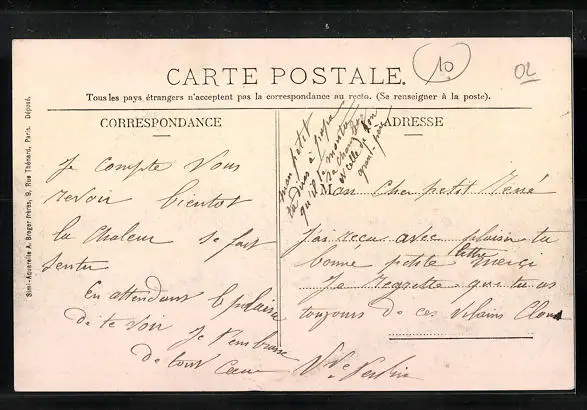 10
02
CARTE POSTALE.
Tous les pays étrangers n'acceptent pas la correspondance au recto. (Se renseigner à la poste).
CORRESPONDANCE
ADRESSE
Semi-Aquarelle A. Breger Frères, 9, Rue Thénard, Paris. Déposé.
Mon Cher petit René
J'ai reçu avec plaisir ta
bonne petite lettre merci
Je Regrette que tu as
toujours de ces vilains Clous
Je Compte Vous
revoir bientot
la Chaleur se fait
Sentir
En attendant le plaisir
de te voir Je t'embrasse
de tout Cœur
mon petit
tu diras à papa
qu'il
la chambre
et celle de